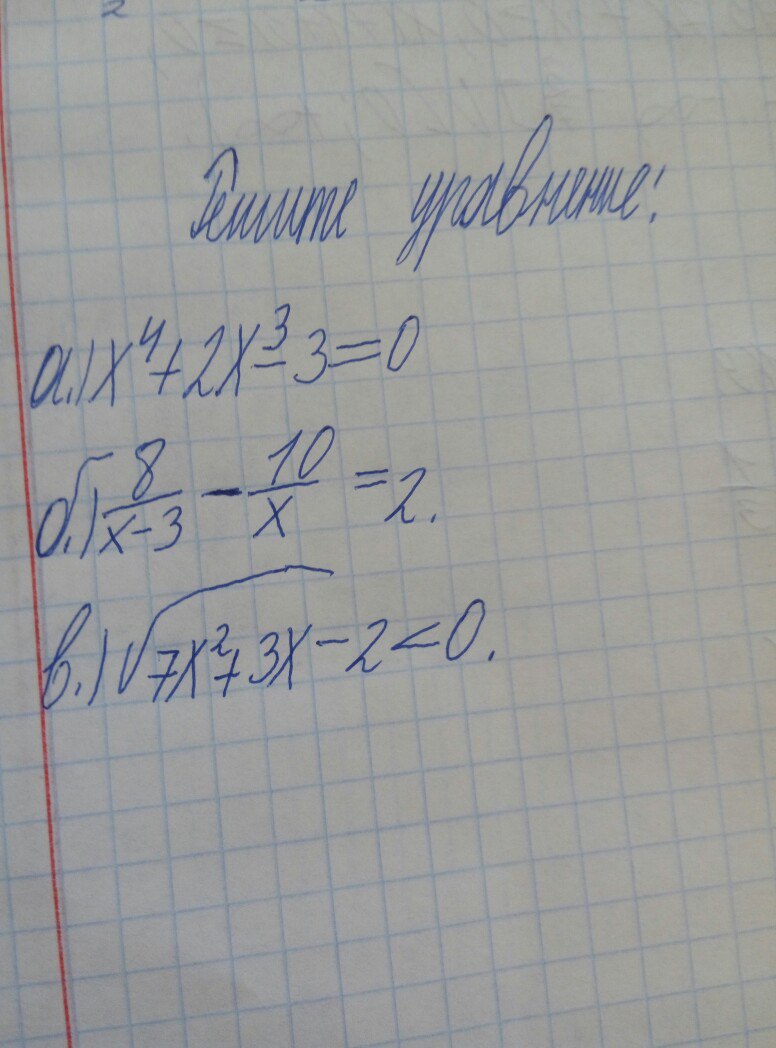 Решите уравнение:
а.) x⁴+2x³-3=0
б.) 8/(x-3) - 10/x = 2.
в.) √(7x²+3x) - 2<0.